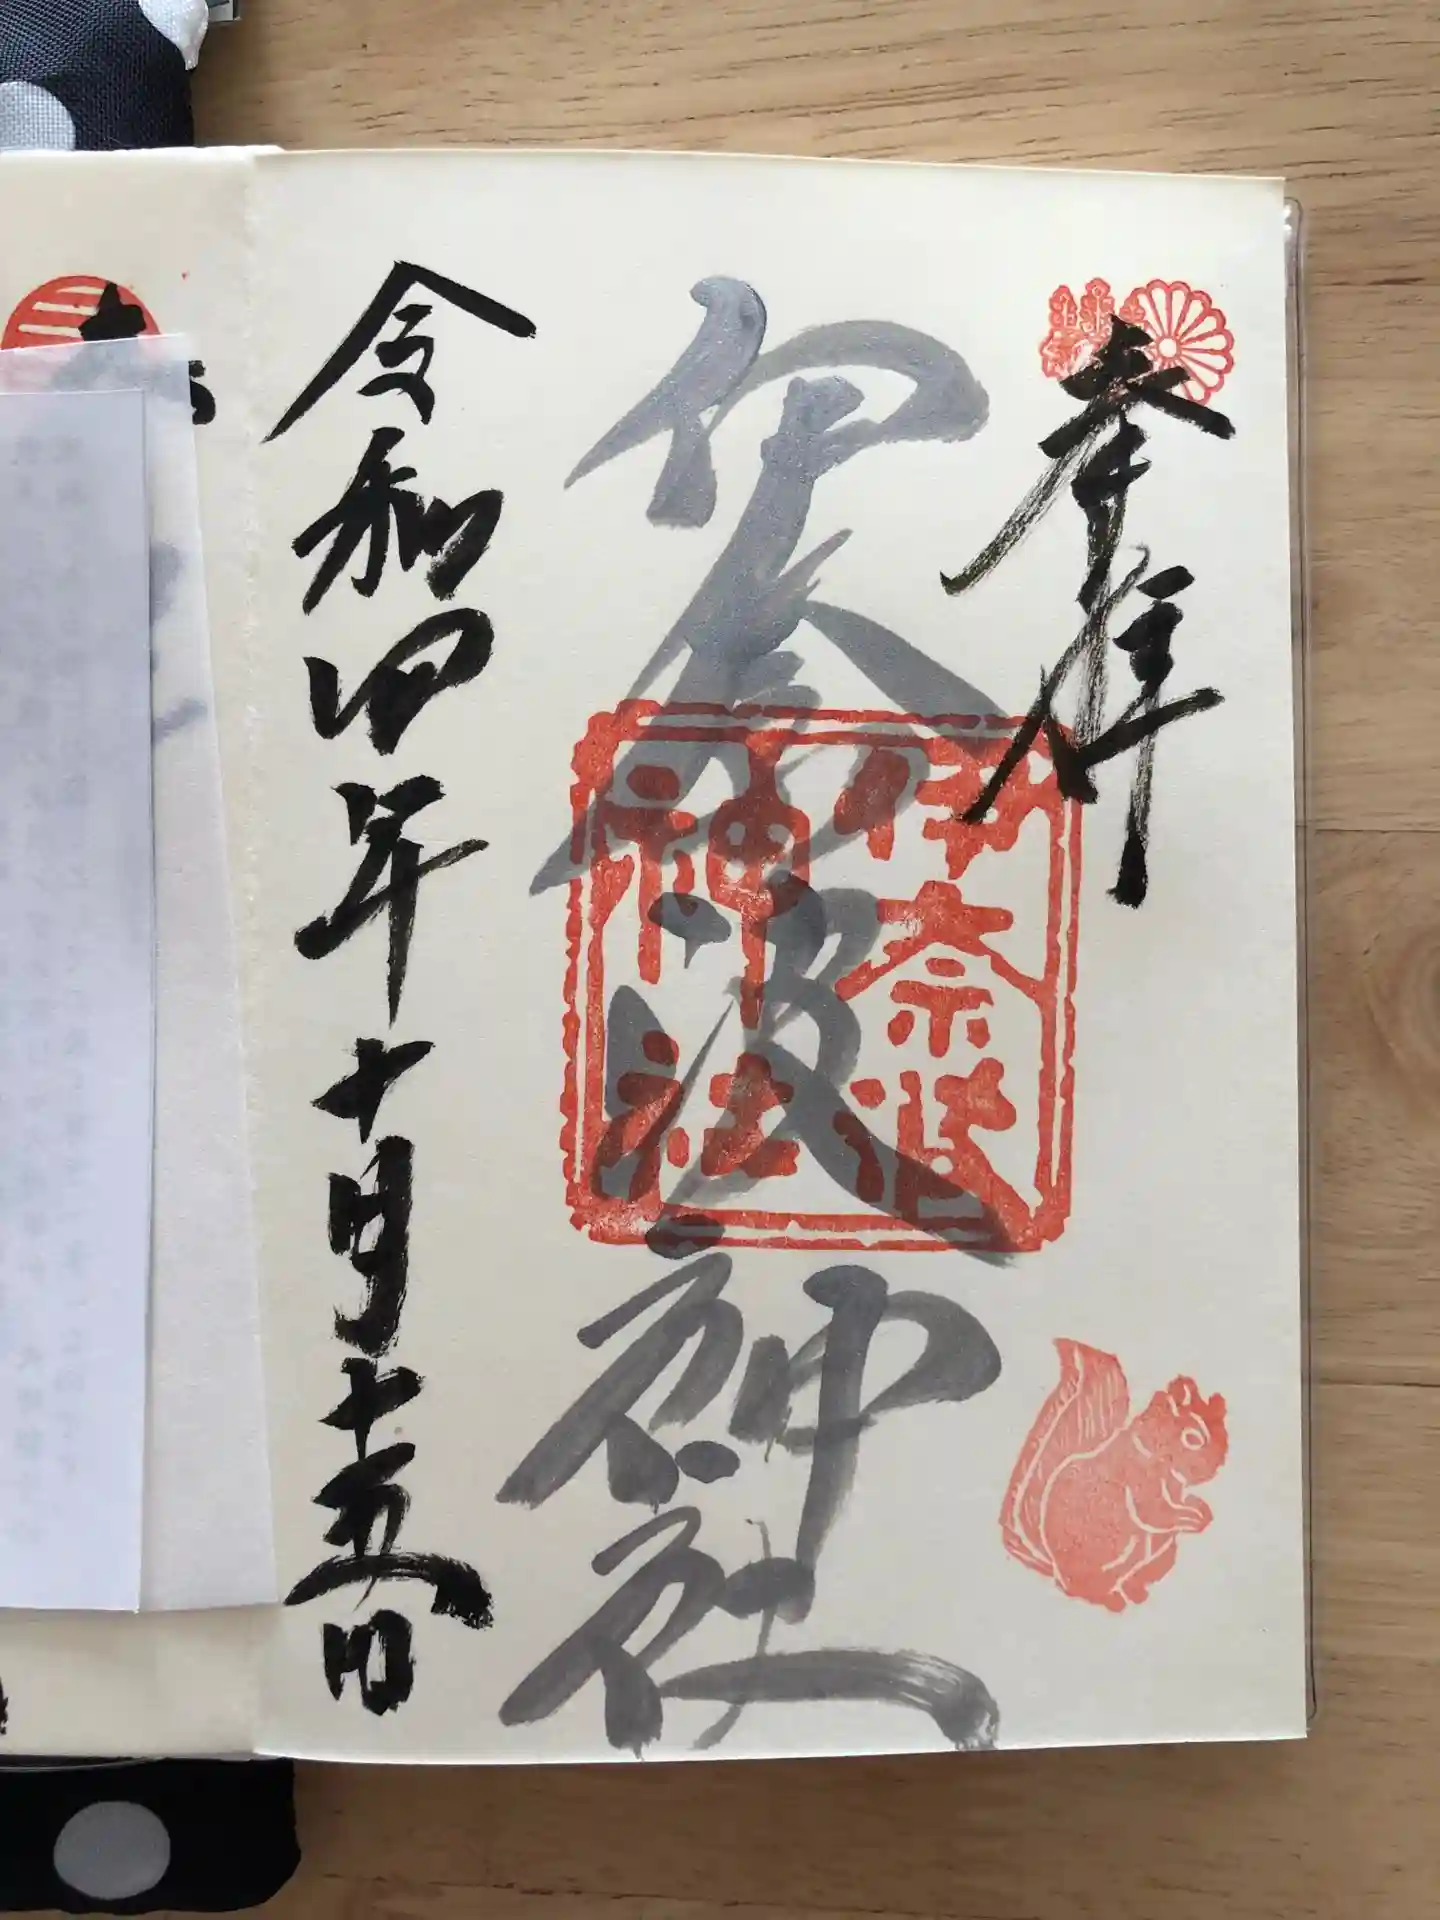 奉拝
伊奈波神社
伊奈波
神社
令和四年十月十五日